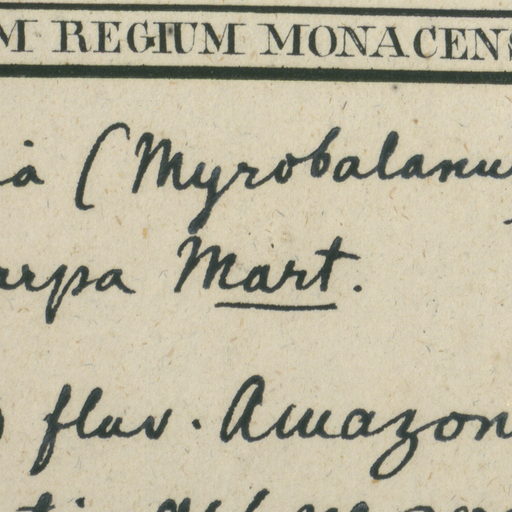 M REGIUM MONACENS
ia (Myrobalanus
arpa Mart.
) fluv. Amazon